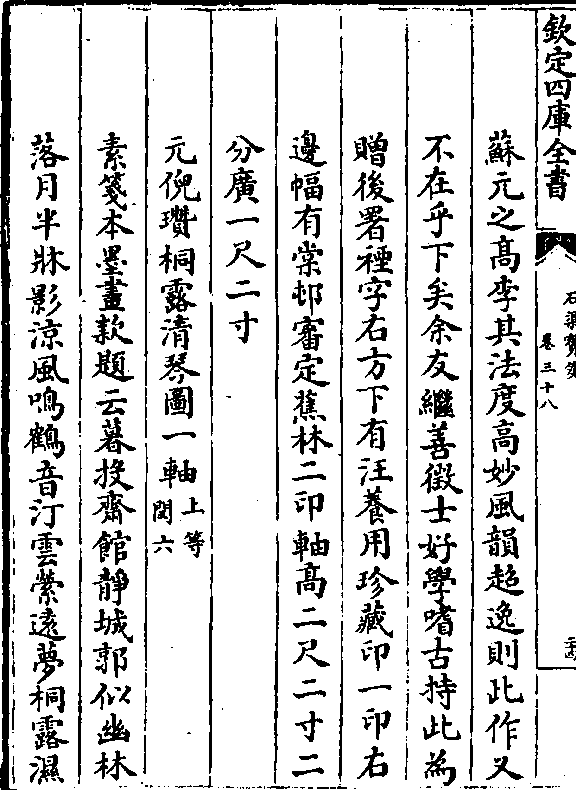 欽定四庫全書
石渠寳笈
卷三十八
蘇元之髙李其法度高妙風韻超逸則此作又
不在乎下矣余友繼善徵士好學嗜古持此為
贈後署禋字右方下有汪養用珍藏印一印右
邊幅有棠邨審定蕉林二印軸髙二尺二寸二
分廣一尺二寸
元倪瓚桐露清琴圖一軸上等閏六
素箋本墨畫款題云暮投齋館靜城郭似幽林
落月半牀影涼風鳴鶴音汀雲縈遠夢桐露濕